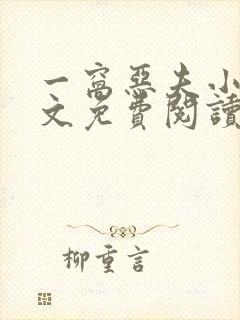 一窩惡夫小
文免費閱讀
柳重言